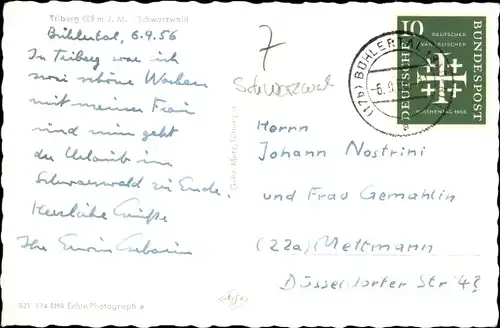 Triberg 685 m ü. M. Schwarzwald
Bühlertal, 6.9.56
In Triberg war ich
zwei schöne Wochen
mit meiner Frau
und nun geht
der Urlaub im
Schwarzwald zu Ende.
Herzliche Grüße
Ihr Erwin
7
Schwarzwal
Gebr. Metz, Tübingen
521 BHS Echte Photographie
Agfa
(17b) BÜHLERTAL
-6.9.
a
10
DEUTSCHER
EVANGELISCHER
KIRCHENTAG 1956
DEUTSCHE
BUNDESPOST
Herrn
Johann Nostrini
und Frau Gemahlin
(22a) Mettmann
Düsseldorfer Str 42